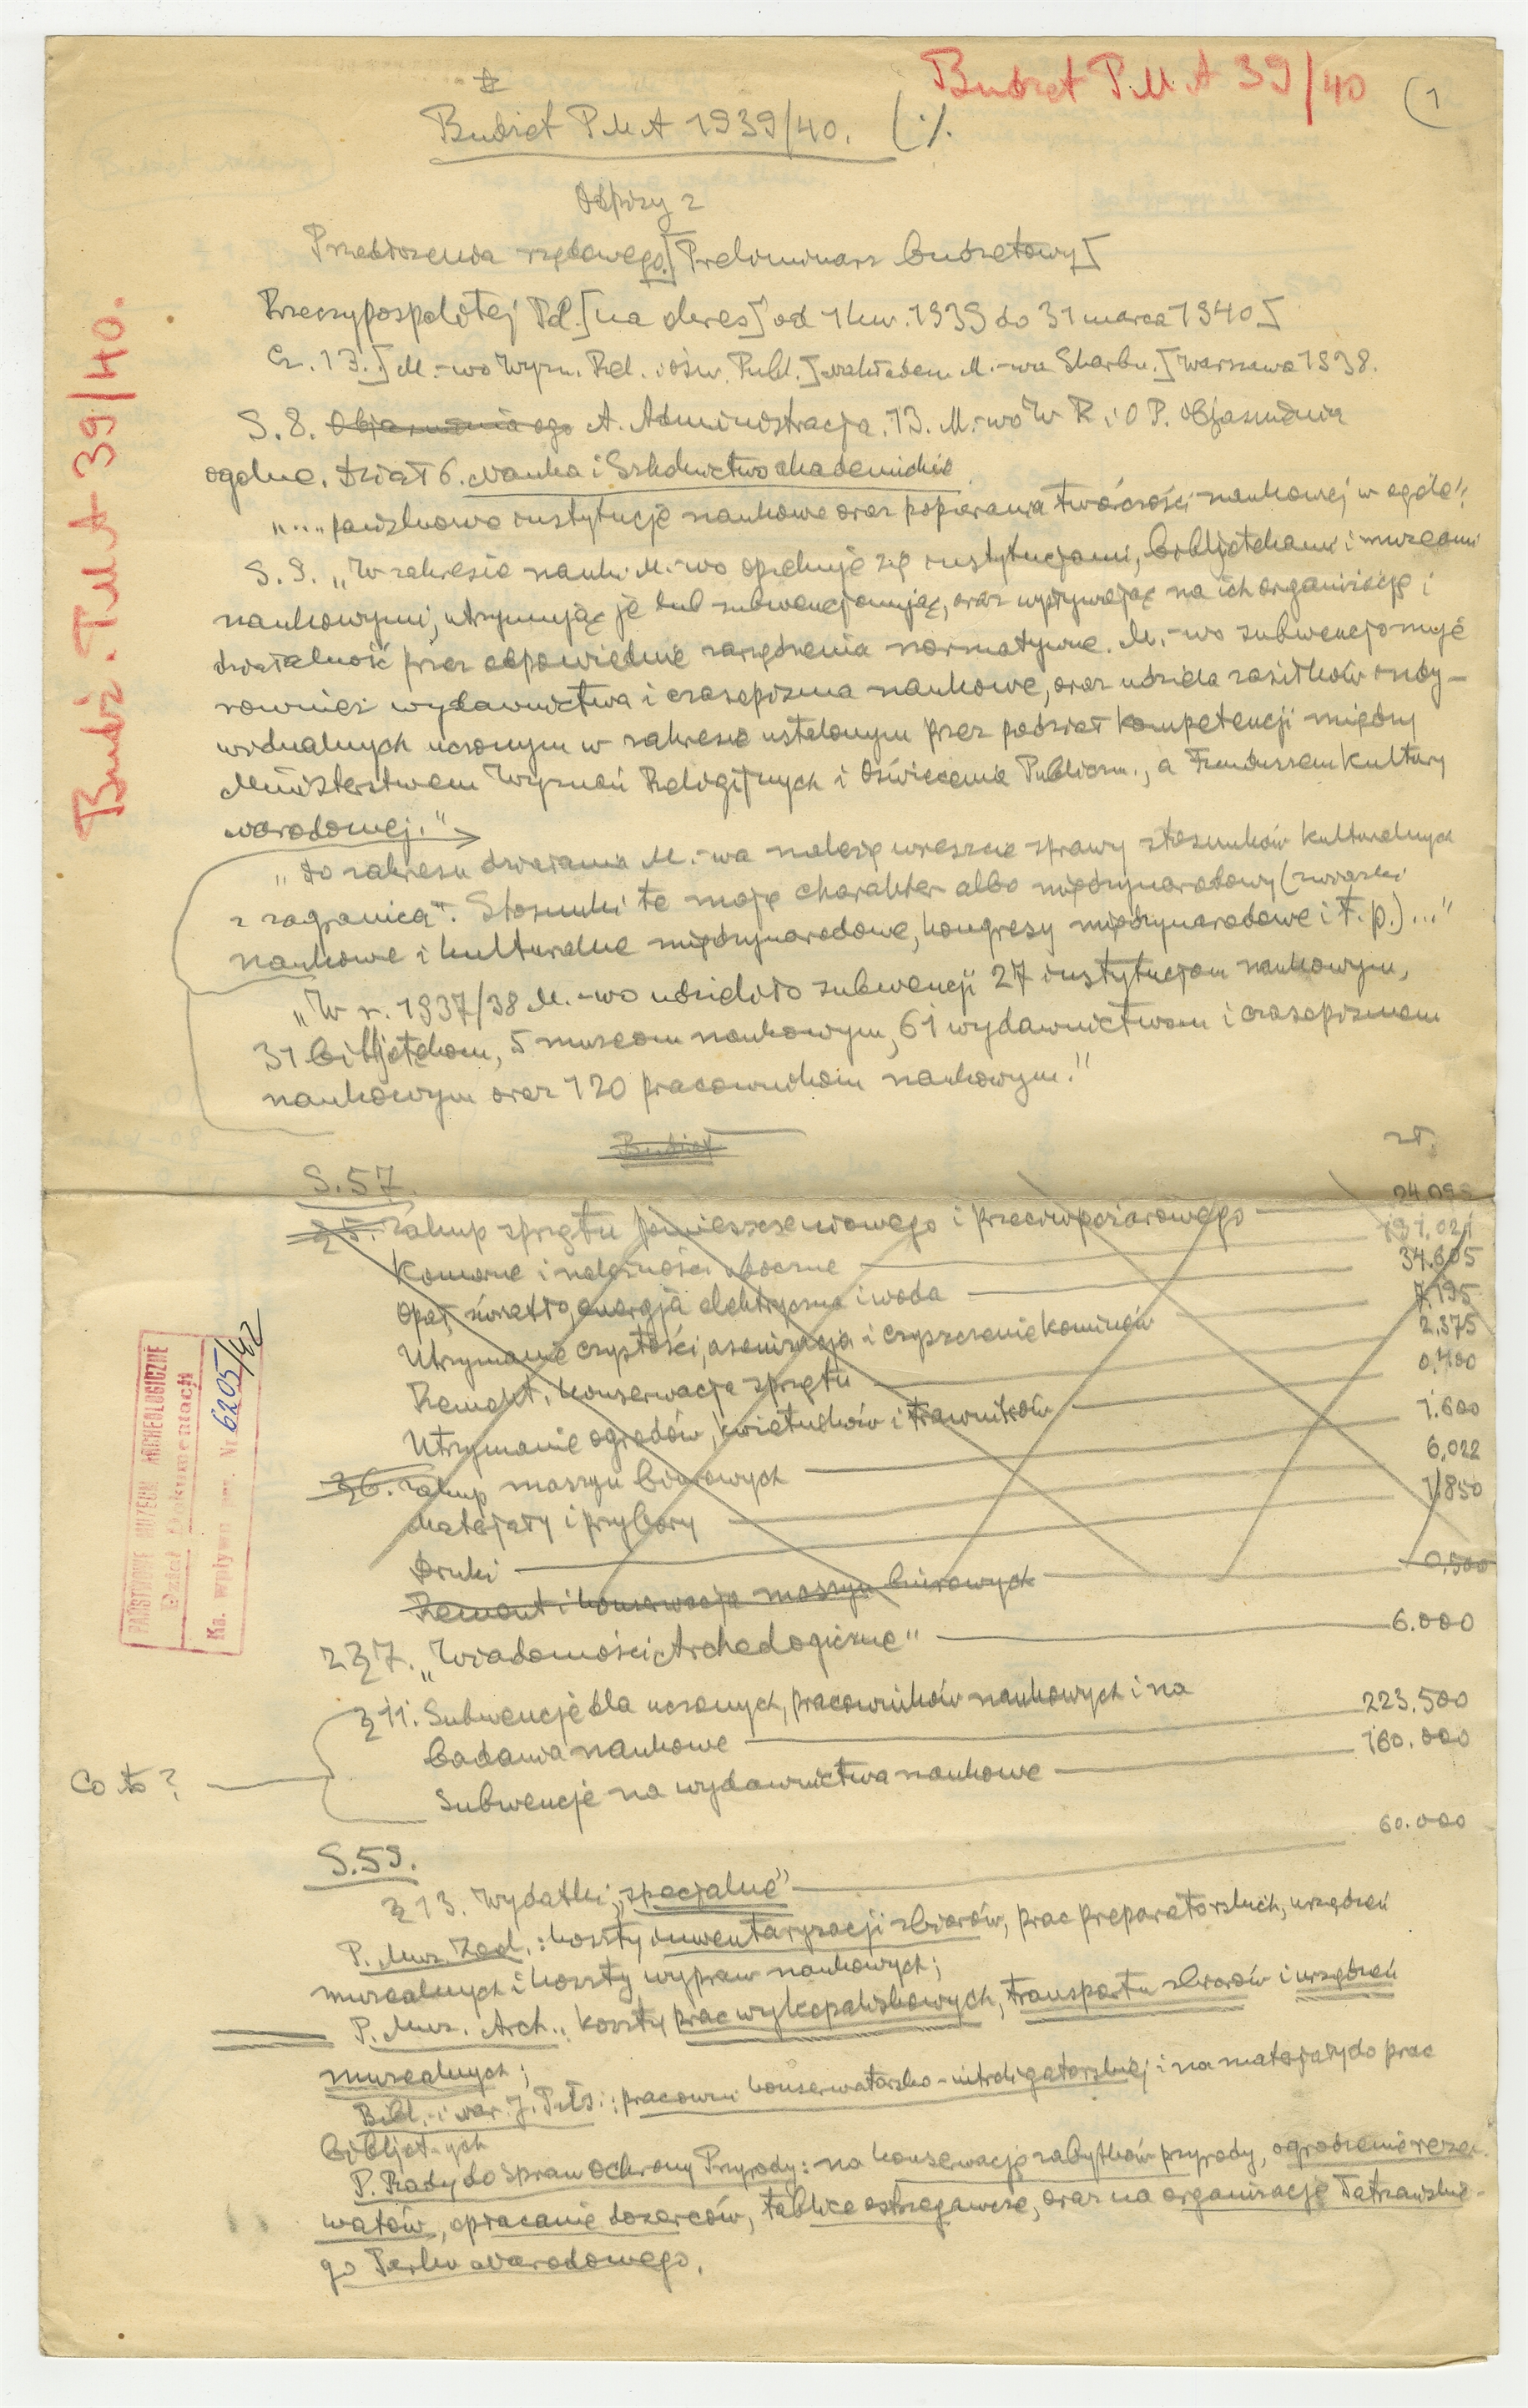 Budżet P.M.A 39/40
(1
Budżet PMA 1939/40. (·/.
Odpisy z
Przedłożenia rządowego.[Preliminarz budżetowy]
Rzeczypospolitej Pol.[na okres] od 1 kw. 1939 do 31 marca 1940]
Cz. 13.] M.-wo Wyzn. Rel. i Ośw. Publ.] nakładem M.-wa Skarbu.] Warszawa 1938.
S. 8. Objaśnienia ogo A. Administracja. 13. M.-wo W R. i O P. Objaśnienia
ogólne. Dział 6. Nauka i Szkolnictwo akademickie
„... państwowe instytucje naukowe oraz popierania twórczości naukowej w ogóle”.
S. 9. „W zakresie nauki M.-wo opiekuje się instytucjami, bibljotekami i muzeami
naukowymi, utrzymując je lub subwencjonując, oraz wpływając na ich organizację i
działalność przez odpowiednie zarządzenia normatywne. M.-wo subwencjonuje
również wydawnictwa i czasopisma naukowe, oraz udziela zasiłków indy-
widualnych uczonym w zakresie ustalonym przez podział kompetencji między
Ministerstwem Wyznań Religijnych i Oświecenia Publiczn., a Funduszem Kultury
Narodowej.”
„Do zakresu działania M.-wa należą wreszcie sprawy stosunków kulturalnych
z zagranicą”. Stosunki te mają charakter albo międzynarodowy (związki
naukowe i kulturalne międzynarodowe, kongresy międzynarodowe i t. p.) ...”
„W r. 1937/38 M.-wo udzieliło subwencji 27 instytucjom naukowym,
31 bibljotekom, 5 muzeom naukowym, 61 wydawnictwom i czasopismom
naukowym oraz 120 pracownikom naukowym.”
Budżet
zł.
S. 57.
§ 5. Zakup sprzętu pomieszczeniowego i przeciwpożarowego — 24.09
Komorne i należności uboczne — 191.021
Opał, światło, energja elektryczna i woda — 34.605
Utrzymanie czystości, asenizacja i czyszczenie kominów — 7.195
Remont, konserwacja sprzętu — 2.375
Utrzymanie ogrodów, kwietników i trawników — 0.400
§ 6. Zakup maszyn biurowych — 1.600
Materjały i przybory — 6.022
Druki — 1.850
Remont i konserwacja maszyn biurowych — 0.500
z § 7. „Wiadomości Archeologiczne” — 6.000
§ 11. Subwencje dla uczonych, pracowników naukowych i na
badania naukowe — 223.500
Subwencje na wydawnictwa naukowe — 160.000
Co to?
S. 59.
§ 13. Wydatki „specjalne” — 60.000
P. Muz. Zool.: koszty inwentaryzacji zbiorów, prac preparatorskich, urządzeń
muzealnych i koszty wypraw naukowych;
P. Muz. Arch.: koszty prac wykopaliskowych, transportu zbiorów i urządzeń
muzealnych;
Bibl. i Nar. J. Piłs.: pracowni konserwatorsko-introligatorskiej i na materjały do prac
bibljot-ych
P. Rady do Spraw Ochrony Przyrody: na konserwację zabytków przyrody, ogrodzenie rezer-
watów, opłacanie dozorców, tablice ostrzegawcze, oraz na organizację Tatrzańskie-
go Parku Narodowego.
Budż. PMA 39/40.
PAŃSTWOWE MUZEUM ARCHEOLOGICZNE
Dział Dokumentacji
Ks. wpływu Nr 6205/